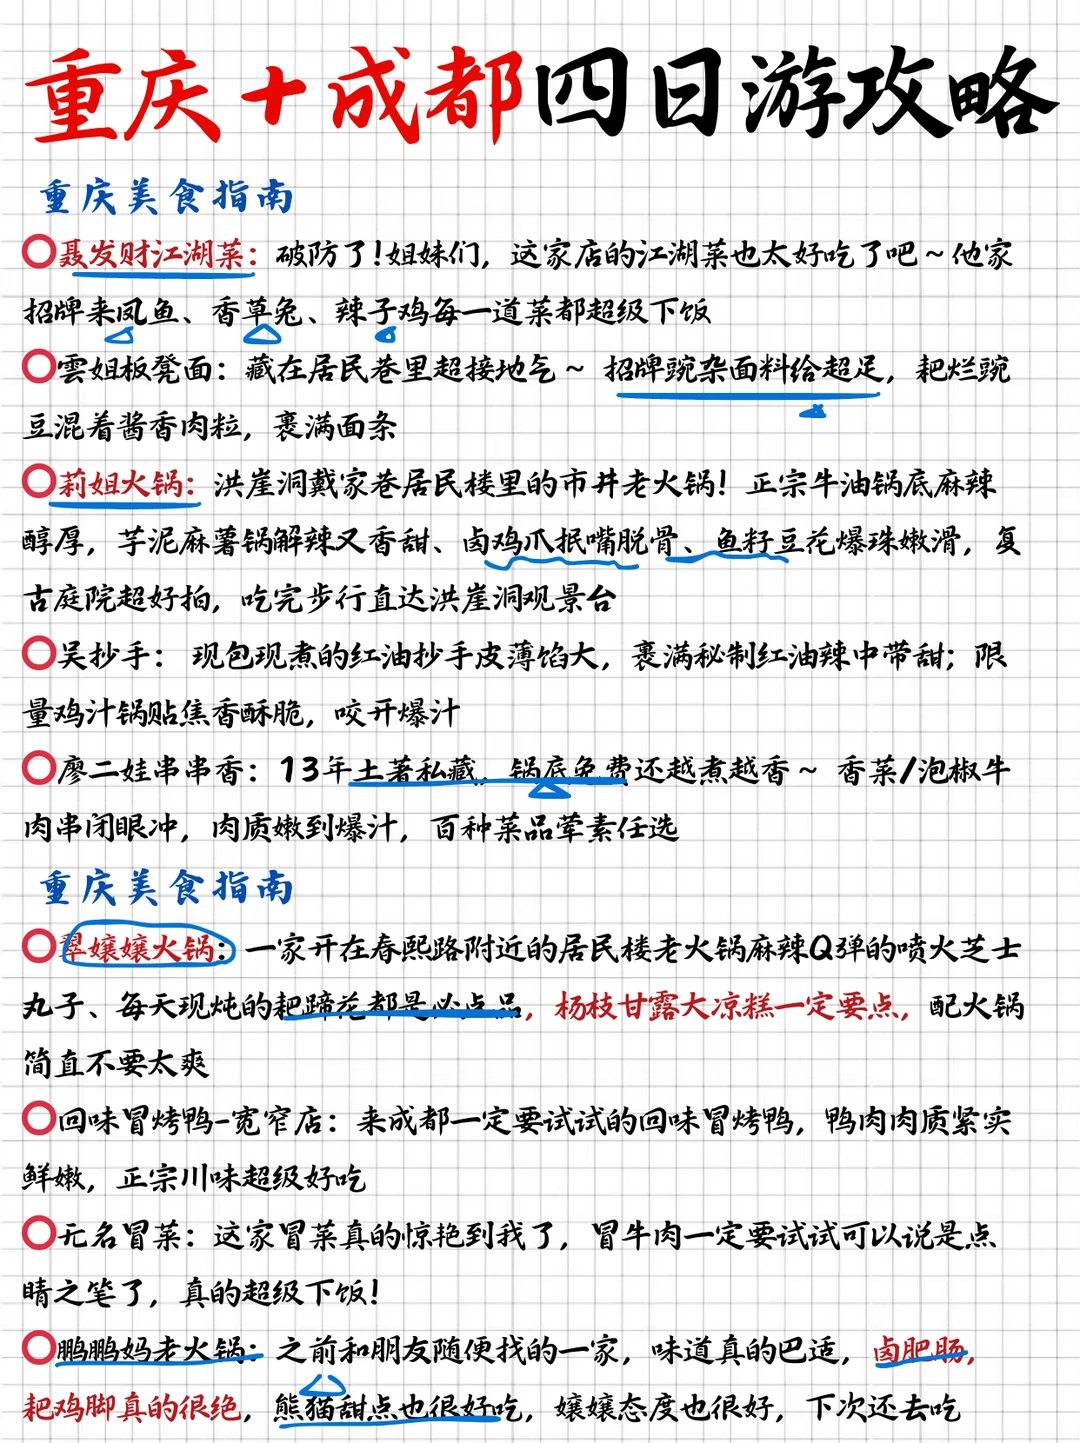 重庆+成都四日游攻略
重庆美食指南
聂发财江湖菜：破防了！姐妹们，这家店的江湖菜也太好吃了吧~他家
招牌来凤鱼、香草兔、辣子鸡每一道菜都超级下饭
雲姐板凳面：藏在居民巷里超接地气~ 招牌豌杂面料给超足，耙烂豌
豆混着酱香肉粒，裹满面条
莉姐火锅：洪崖洞戴家巷居民楼里的市井老火锅！正宗牛油锅底麻辣
醇厚，芋泥麻薯锅解辣又香甜、卤鸡爪抿嘴脱骨、鱼籽豆花爆珠嫩滑，复
古庭院超好拍，吃完步行直达洪崖洞观景台
吴抄手：现包现煮的红油抄手皮薄馅大，裹满秘制红油辣中带甜；限
量鸡汁锅贴焦香酥脆，咬开爆汁
廖二娃串串香：13年土著私藏，锅底免费还越煮越香~ 香菜/泡椒牛
肉串闭眼冲，肉质嫩到爆汁，百种菜品荤素任选
重庆美食指南
翠孃孃火锅：一家开在春熙路附近的居民楼老火锅麻辣Q弹的喷火芝士
丸子、每天现炖的耙蹄花都是必点品，杨枝甘露大凉糕一定要点，配火锅
简直不要太爽
回味冒烤鸭-宽窄店：来成都一定要试试的回味冒烤鸭，鸭肉肉质紧实
鲜嫩，正宗川味超级好吃
无名冒菜：这家冒菜真的惊艳到我了，冒牛肉一定要试试可以说是点
睛之笔了，真的超级下饭！
鹏鹏妈老火锅：之前和朋友随便找的一家，味道真的巴适，卤肥肠，
耙鸡脚真的很绝，熊猫甜点也很好吃，孃孃态度也很好，下次还去吃